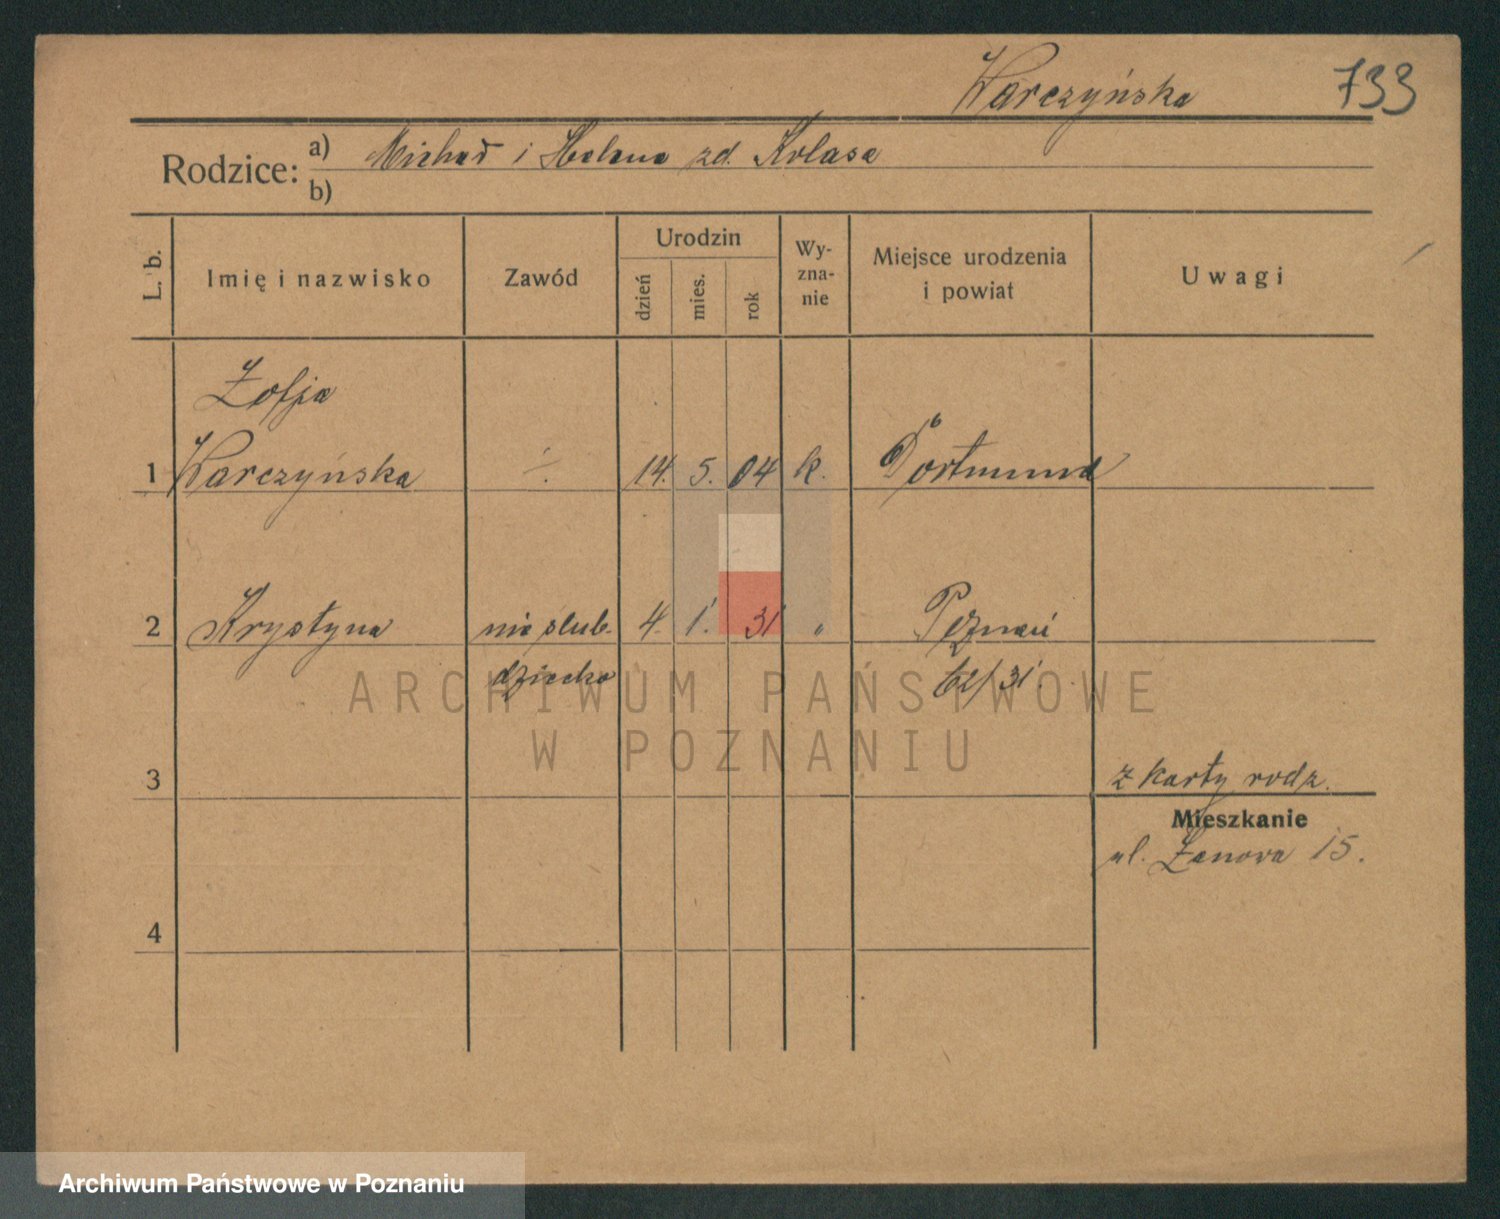 Warczyńska 733
Rodzice: a) Michał i Helena zd. Kolasa
b)
L. b.
Imię i nazwisko
Zawód
Urodzin
dzień
mies.
rok
Wy-
zna-
nie
Miejsce urodzenia
i powiat
Uwagi
Zofja
1 Warczyńska ÷ 14. 5. 04 k. Dortmund
2 Krystyna nieślub. 4. 1. 31 " Poznań
dziecko 62/31.
3 z karty rodz.
Mieszkanie
ul. Łanowa 15.
4
ARCHIWUM PAŃSTWOWE
W POZNANIU
Archiwum Państwowe w Poznaniu